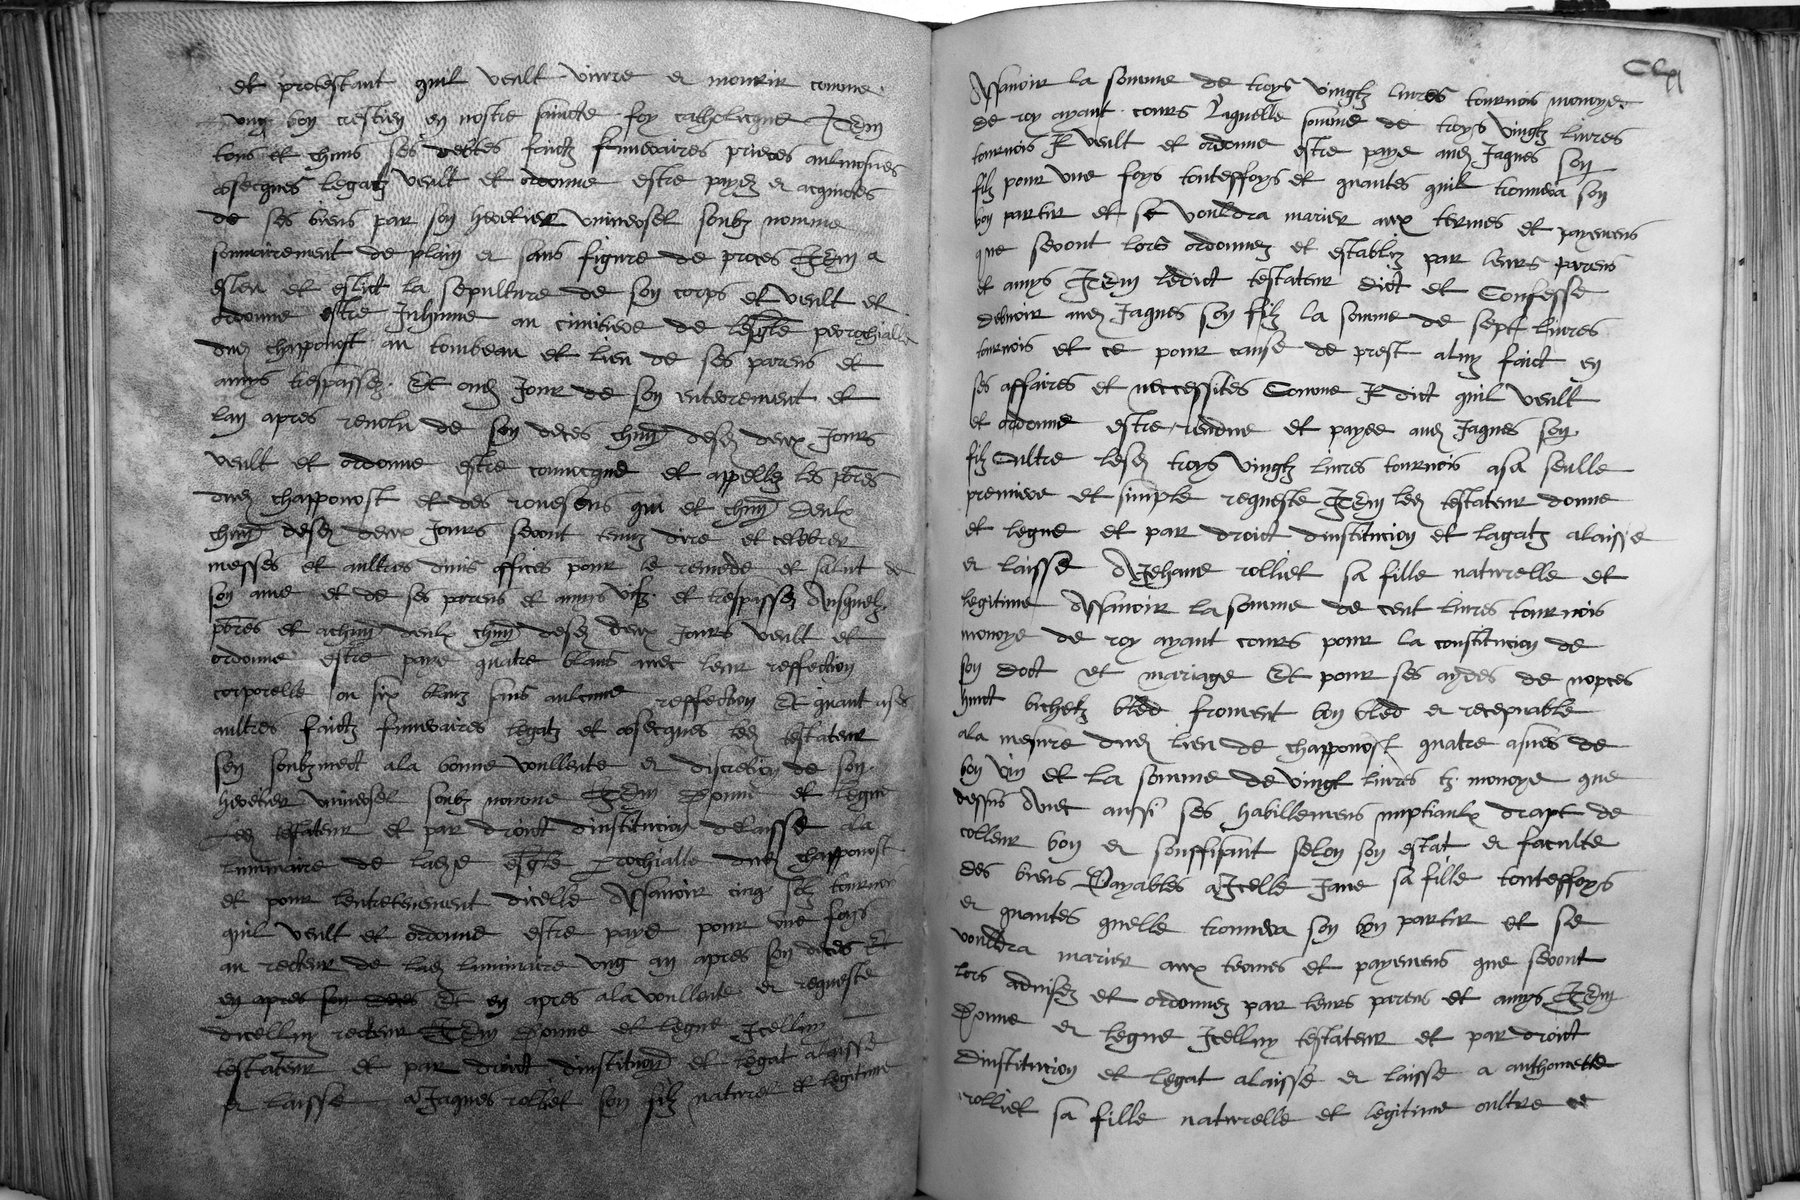 et protestant quil veult vivre et mourir comme
ung bon crestien en nostre saincte foy catholicque Item
tous et chuns ses debtes faictz funeraires prieres aulmosnes
obsecques legatz veult et ordonne estre payez et acquictes
de ses biens par son heretier universel soubz nomme
sommairement de plain et sans figure de proces Item a
esleu et eslict la sepulture de son corps et veult et
ordonne estre Inhume au cimitiere de lesgle perrochialle
dud chapponost au tombeau et lieu de ses parens et
amys trespassez. Et aud Jour de son enterrement et
lan apres revolu de son deces chun desd deux Jours
veult et ordonne estre convocque et appellez les pbres
dud chapponost et des rouesens qui et chun deulx
chun desd deux Jours seront tenuz dire et celebrer
messes et aultres divins offices pour le remede et salut de
son ame et de ses parens et amys vifz et trespassez Ausquelz
pbres et achun deulx chun desd deux Jours veult et
ordonne estre paye quatre blans avec leur reffection
corporelle ou six blanz sans aulcune reffection Et quant a ses
aultres faictz funeraires legatz et obsecques led testateur
sen soubzmect a la bonne voullente et discretion de son
heretier universel soubz nomme Item Donne et legue
Led testateur et par droict dinstitucion delaisse a la
luminaire de lad esgle prochialle dud chapponost
et pour lentretenement dicelle Assavoir cinq solz tournois
quil veult et ordonne estre paye pour une foys
au recteur de lad luminaire ung an apres son deces Et
en apres son deces Et en apres a la voullente et requeste
dicelluy recteur Item Donne et legue Icelluy
testateur et par droict dinstitucion et legat a laisse
et laisse a Jaques rolliet son filz naturel et legitime
CLxi
Assavoir la somme de troys vingtz livres tournois monoye
de roy ayant cours Laquelle somme de troys vingtz livres
tournois Il veult et ordonne estre paye aud Jaques son
filz pour une foys touteffoys et quantes quil trouvera son
bon partir et se vouldra marier aux termes et payemens
que seront lors ordonnez et establiz par leurs parens
et amys Item ledict testateur dict et Confesse
debvoir aud Jaques son filz la somme de sept livres
tournois et ce pour cause de prest a luy faict en
ses affaires et neccessites Comme Il dict quil veult
et ordonne estre rendue et payee aud Jaques son
filz Oultre lesd troys vingtz livres tournois a sa seulle
premiere et simple requeste Item led testateur donne
et legue et par droict dinstitucion et lagatz a laisse
et laisse A Jehane rolliet sa fille naturelle et
legitime Assavoir la somme de cent livres tournois
monoye de roy ayant cours pour la constitucion de
son doct et mariage Et pour ses aydes de nopces
huict bichetz bled froment bon bled et recepvable
a la mesure dud lieu de chapponost quatre asnes de
bon vin et la somme de vingt livres tz monoye que
dessus Avec aussi ses habillemens nuptiaulx drapt de
colleur bon et souffisant selon son estat et faculte
des biens Payables a Icelle Jane sa fille touteffoys
et quantes quelle trouvera son bon partir et se
vouldra marier aux termes et payemens que seront
lors advisez et ordonnez par leurs parens et amys Item
Donne et legue Icelluy testateur et par droict
dinstitucion et legat a laisse et laisse a anthonette
rolliet sa fille naturelle et legitime oultre ce